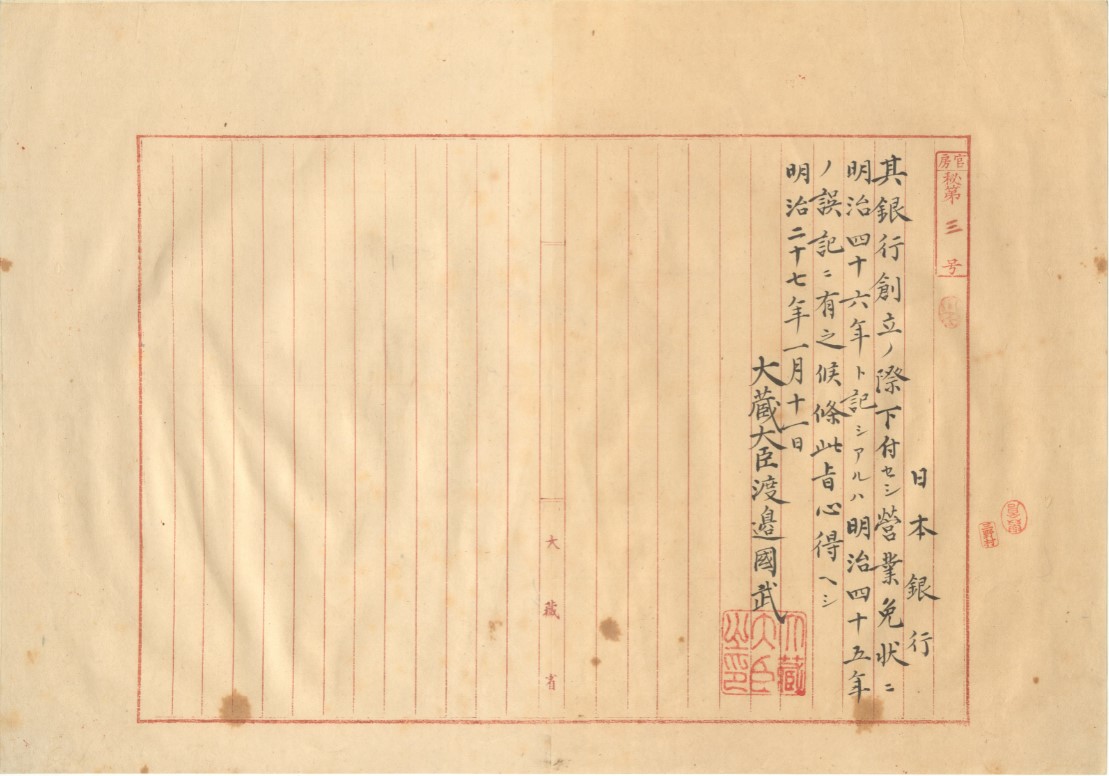 官房
秘第三号
日本銀行
其銀行創立ノ際下付セシ営業免状ニ
明治四十六年ト記シアルハ明治四十五年
ノ誤記ニ有之候條此旨心得ヘシ
明治二十七年一月十一日
大蔵大臣渡邉國武
大蔵大臣之印
大藏省